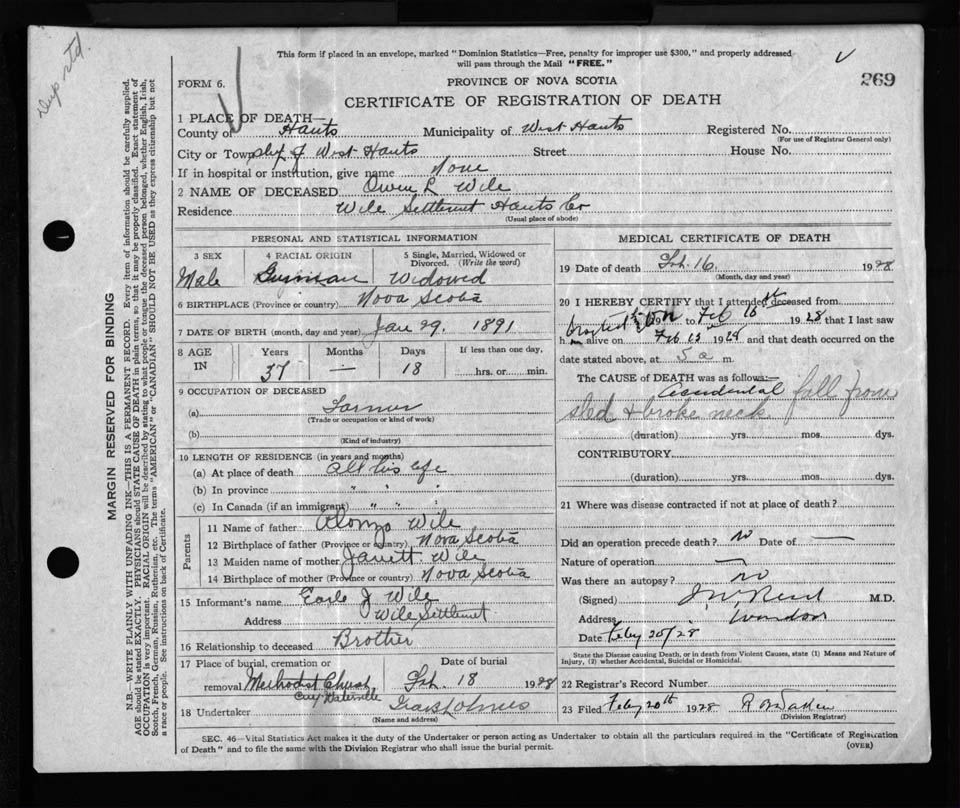 Dup rtd.
This form if placed in an envelope, marked "Dominion Statistics—Free, penalty for improper use $300," and properly addressed
will pass through the Mail "FREE."
269
FORM 6.
PROVINCE OF NOVA SCOTIA
CERTIFICATE OF REGISTRATION OF DEATH
1 PLACE OF DEATH—
County of Hants Municipality of West Hants Registered No.
(For use of Registrar General only)
City or Town of West Hants Street House No.
If in hospital or institution, give name None
2 NAME OF DECEASED Owen R Wile
Residence Wile Settlemnt Hants Co
(Usual place of abode)
PERSONAL AND STATISTICAL INFORMATION
3 SEX 4 RACIAL ORIGIN 5 Single, Married, Widowed or
Divorced. (Write the word)
Male German Widowed
6 BIRTHPLACE (Province or country) Nova Scotia
7 DATE OF BIRTH (month, day and year) Jan 29. 1891
8 AGE Years Months Days If less than one day,
IN 37 — 18 hrs. or min.
9 OCCUPATION OF DECEASED
(a) Farmer
(Trade or occupation or kind of work)
(b)
(Kind of industry)
10 LENGTH OF RESIDENCE (in years and months)
(a) At place of death All his life
(b) In province " " "
(c) In Canada (if an immigrant) " " "
Parents
11 Name of father Alonzo Wile
12 Birthplace of father (Province or country) Nova Scotia
13 Maiden name of mother Wile
14 Birthplace of mother (Province or country) Nova Scotia
15 Informant's name Earle J Wile
Address Wile Settlemnt
16 Relationship to deceased Brother
17 Place of burial, cremation or Date of burial
removal Methodist Church Feb. 18 1928
18 Undertaker
(Name and address)
MEDICAL CERTIFICATE OF DEATH
19 Date of death Feb. 16 1928
(Month, day and year)
20 I HEREBY CERTIFY that I attended deceased from
to Feb 16 1928 that I last saw
h m alive on Feb 1928 and that death occurred on the
date stated above, at 5 a m.
The CAUSE of DEATH was as follows:—
Accidental fall from
sled & broke neck
(duration) yrs. mos. dys.
CONTRIBUTORY
(duration) yrs. mos. dys.
21 Where was disease contracted if not at place of death?
Did an operation precede death? no Date of —
Nature of operation —
Was there an autopsy? no
(Signed) M.D.
Address Windsor
Date Feby 20/28
State the Disease causing Death, or in death from Violent Causes, state (1) Means and Nature of
Injury, (2) whether Accidental, Suicidal or Homicidal.
22 Registrar's Record Number
23 Filed Feby 20th 1928
(Division Registrar)
SEC. 46—Vital Statistics Act makes it the duty of the Undertaker or person acting as Undertaker to obtain all the particulars required in the "Certificate of Registration
of Death" and to file the same with the Division Registrar who shall issue the burial permit.
(OVER)
MARGIN RESERVED FOR BINDING
N.B.—WRITE PLAINLY WITH UNFADING INK—THIS IS A PERMANENT RECORD. Every item of information should be carefully supplied.
AGE should be stated EXACTLY. PHYSICIANS should STATE CAUSE OF DEATH in plain terms, so that it may be properly classified. Exact statement of
OCCUPATION is very important. RACIAL ORIGIN will be described by stating to what people or tongue the deceased person belonged, whether English, Irish,
Scotch, French, German, Russian, Ruthenian, etc. The terms "AMERICAN" or "CANADIAN" SHOULD NOT BE USED as they express citizenship but not
a race or people. See instructions on back of Certificate.